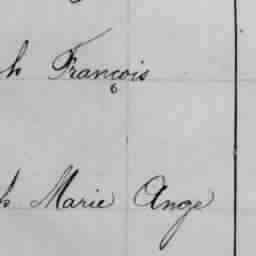 h François
h Marie Ange